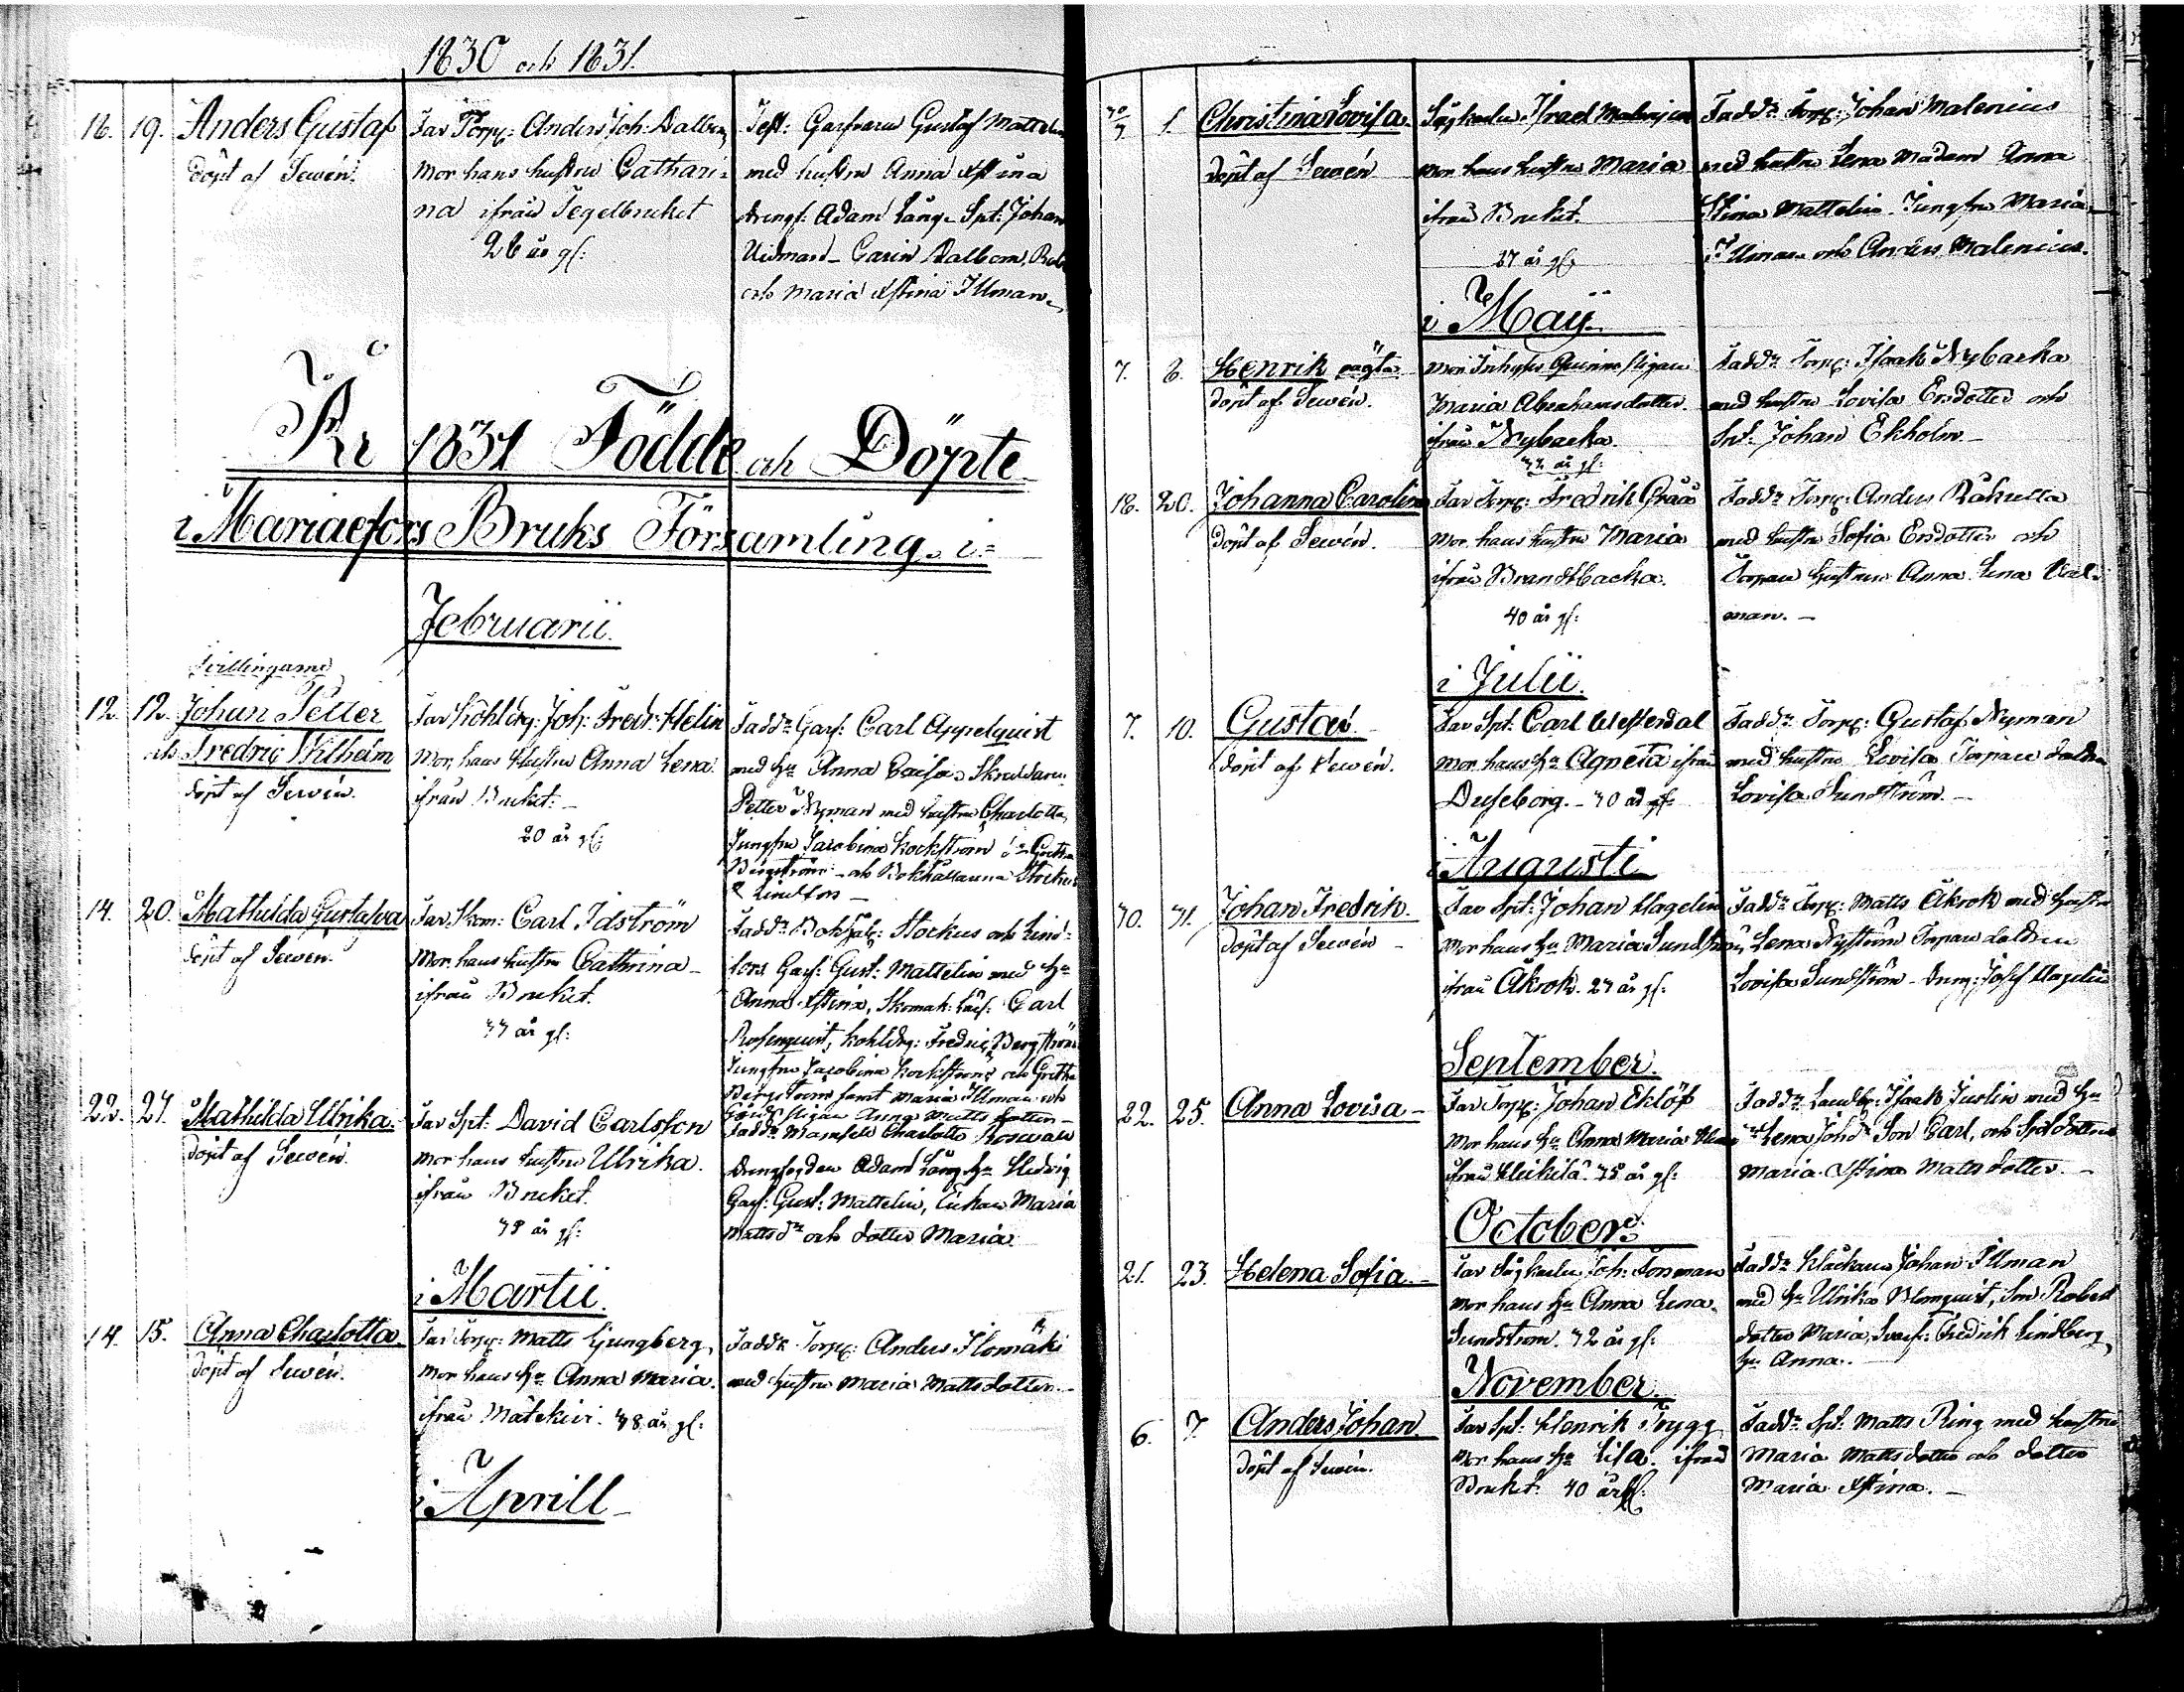 1830 och 1831.
18. 19. Anders Gustaf
döpt af Sewén.
Far Torp: Anders Joh: Dalbom,
Mor hans hustru Cathari=
na ifrån Tegelbruket
26 år gl:
Test: Garfvaren Gustaf Mattelin
med hustru Anna Xstina
Drengf: Adam Lång. Spt: Johan
Widmard Carin Dalbom,
och Maria Xstina Illman.
År 1831 Födde och Döpte
i Mariaefors Bruks Församling. i=
Februarii.
Tvillingarne
12. 12. Johan Petter
och Fredric Wilhelm
döpt af Sewén.
Far Kohldrg: Joh: Fredr: Helin
Mor, hans Hustru Anna Lena.
ifrån Bruket.
20 år gl:
Fadd:r Garf: Carl Appelquist
med h:u Anna Caisa, Skreddaren
Petter Nyman med hustru Charlotta,
Jungfru Jacobina Kockström
Bergström och Bokhållarena Stockus
& Lindfors
14. 20. Mathilda Gustafva
döpt af Sewén.
Far Skom: Carl Idström
Mor hans hustru Cathrina
ifrån Bruket.
33 år gl:
Fadd:r Bokhål: Stockus och Lind=
fors. Garf: Gust: Mattelin med h:u
Anna Xstina, Skomak: Carl
Rosenquist, Kohldrg: Fredric Bergström
Jungfru Jacobina Kockström och Gretha
Bergström samt Maria Illman och
Pigan Anna Matts dotter
22. 27. Mathilda Ulrika.
döpt af Sewén.
Far Spt: David Carlsson
Mor hans hustru Ulrika.
ifrån Bruket.
38 år gl:
Fadd:r Mamsell Charlotta Roswall
Drengfogden Adam Lång h:u Hedvig
Garf: Gust: Mattelin, Enkan Maria
Matts d:r och dotter Maria.
i Martii.
14. 15. Anna Charlotta
döpt af Sewén.
Far Torp: Matts Ljungberg,
Mor hans h:u Anna Maria.
ifrån Mätäkivi. 38 år gl:
Fadd:r Torp: Anders Ilomäki
med hustru Maria Matts dotter.
i Aprill
30/3 1. Christina Lovisa.
döpt af Sewén
Sågkarlen Israel Malenius
Mor hans hustru Maria
ifrån Bruket.
27 år gl:
Fadd:r Torp: Johan Malenius
med hustru Lena Madam Anna
Stina Mattelin. Jungfru Maria
Illman och Anders Malenius.
i Maÿ.
7. 8. Henrik oägta
döpt af Sewén.
Mor Inhyses Quinnes Pigan
Maria Abrahamsdotter.
ifrån Nybacka.
32 år gl:
Fadd:r Torp: Isaak Nybacka
med hustru Lovisa Ersdotter och
Spt: Johan Ekholm
18. 20. Johanna Carolina
döpt af Sewén.
Far Torp: Fredrik Gråå
Mor hans hustru Maria
ifrån Brandtbacka.
40 år gl:
Fadd:r Torp: Anders Råkulla
med hustru Sofia Ersdotter och
Torpare hustrun Anna Lena
man.
i Julii.
7. 10. Gustav
döpt af Sewén.
Far Spt: Carl Westerdal
Mor hans h:u Agneta ifrån
Duseborg. 30 år gl:
Fadd:r Torp: Gustaf Nyman
med hustru Lovisa Torpare dottren
Lovisa Sundström.
i Augusti
30. 31. Johan Fredrik.
döpt af Sewén
Far Spt: Johan Hagelin
Mor hans h:u Maria Sundström
ifrån Åkrok. 27 år gl:
Fadd:r Torp: Matts Åkrok med hustru
Lena Nyström Torpare dottren
Lovisa Sundström. Dreng: Josef Hagelin
September.
22. 25. Anna Lovisa
Far Torp: Johan Eklöf
Mor hans h:u Anna Maria
ifrån Heikilä. 35 år gl:
Fadd:r Landb: Isaak Juslin med h:u
Lena Johd:r Son Carl, och
Maria Xstina Matts dotter.
October.
21. 23. Helena Sofia.
Far Sågkarlen Joh: Forsman
Mor hans h:u Anna Lena
Sundström. 32 år gl:
Fadd:r Klåckaren Johan Illman
med h:u Ulrika Blomquist, Son Robert
dotter Maria, Svarf: Fredrik Lindberg,
h:u Anna.
November.
6. 7. Anders Johan.
döpt af Sewén.
Far Spt: Henrik Trygg
Mor hans h:u Lisa. ifrån
Bruket. 40 år gl:
Fadd:r Spt: Matts Ring med hustru
Maria Matts dotter och dotter
Maria Xstina.